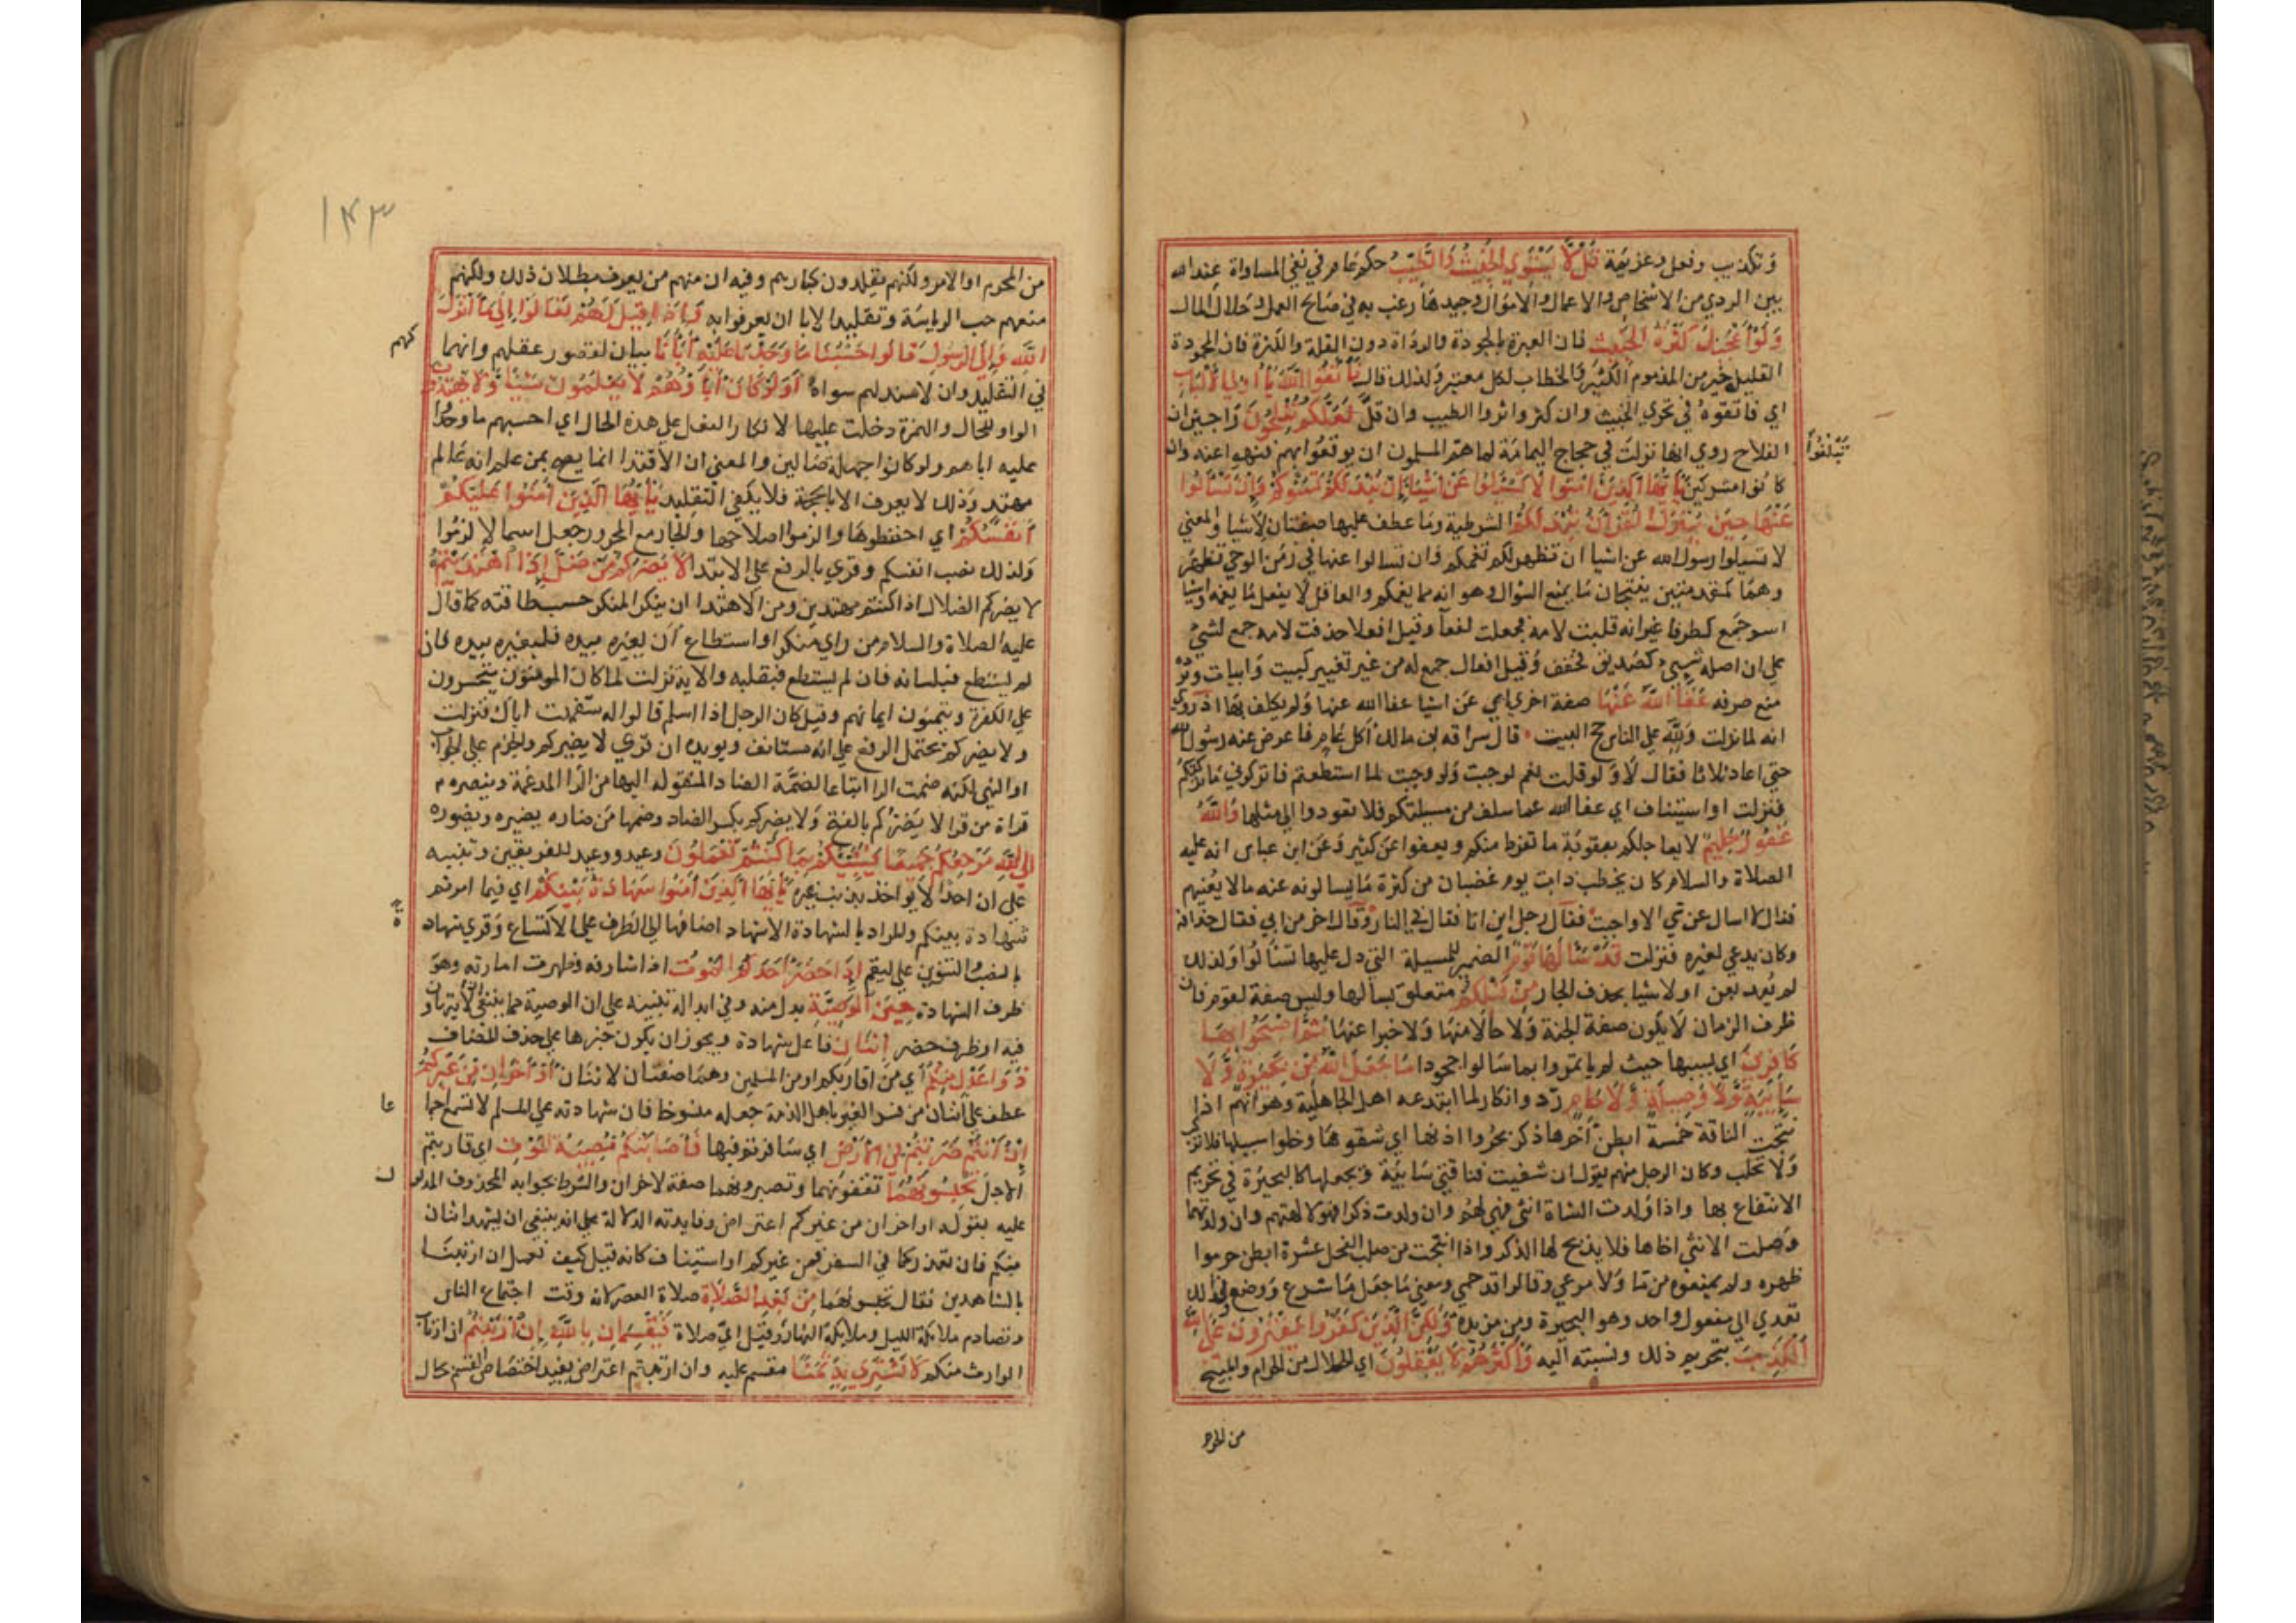 وتكذيب وفعل وعزيمة قل لا يستوي الخبيث والطيب حكم عام في نفي المساواة عند الله
بين الردي من الاشخاص والاعمال والاموال وجيدها رغب به في صالح العمل وحلال المال
ولو اعجبك كثرة الخبيث فان العبرة بالجودة والرداة دون القلة والكثرة فان المحمودة
القليل خير من المذموم الكثير والخطاب لكل معتبر ولذلك قال فاتقوا الله يا اولي الالباب
اي فاتقوه في تحري الخبيث وان كثر واثروا الطيب وان قل لعلكم تفلحون راجين ان
تبلغوا
الفلاح روي انها نزلت في حجاج اليمامة لما هم المسلمون ان يوقعوا بهم فنهوا عنه وان
كانوا مشركين يا ايها الذين امنوا لا تسئلوا عن اشيا ان تبد لكم تسؤكم وان تسالوا
عنها حين ينزل القرآن تبد لكم الشرطية وما عطف عليها صفتان لاشيا والمعني
لا تسيلوا رسول الله عن اشيا ان تظهر لكم تغمكم وان تسالوا عنها في زمن الوحي تظهر
وهما كمقدمتين ينتجان ما يمنع السوال وهو انه مما يغمكم والعاقل لا يفعل ما يغمه واشيا
اسم جمع كطرفا غير انه قلبت لامه فجعلت لفعا وقيل افعلا حذفت لامه جمع لشي
علي ان اصله شيي كصديق فخفف وقيل افعال جمع له من غير تغيير كبيت وابيات ويرده
منع صرفه عفا الله عنها صفة اخري اي عن اشيا عفا الله عنها ولم يكلف بها اذ روي
انه لما نزلت ولله علي الناس حج البيت قال سراقه بن مالك أكل عام فاعرض عنه رسول الله
حتي اعاد ثلاثا فقال لا ولو قلت نعم لوجبت ولو وجبت لما استطعتم فاتركوني ما تركتكم
فنزلت او استيناف اي عفا الله عما سلف من مسيلتكم فلا تعودوا الي مثلها والله
غفور حليم لا يعاجلكم بعقوبة ما تفرط منكم ويعفوا عن كثير وعن ابن عباس انه عليه
الصلاة والسلام كان يخطب ذات يوم غضبان من كثرة ما يسالونه عنه مالا يعنيهم
فقال لا اسال عن شي الا واجبت فقال رجل اين انا فقال في النار وقال اخر من ابي فقال حذافه
وكان يدعي لغيره فنزلت قد سألها قوم الضمير للمسيلة التي دل عليها تسألوا ولذلك
لم يعد بعن او لاشيا بحذف الجار من قبلكم متعلق بسالها وليس صفة لقوم فان
ظرف الزمان لا يكون صفة لجثة ولا حالا منها ولا خبرا عنها ثم اصبحوا بها
كافرين اي بسببها حيث لم ياتمروا بما سالوا جحودا ما جعل الله من بحيرة ولا
سايبة ولا وصيلة ولا حام رد وانكار لما ابتدعه اهل الجاهلية وهو انهم اذا
نتجت الناقة خمسة ابطن آخرها ذكر بحروا اذنها اي شقوها وخلوا سبيلها فلا تركب
ولا تحلب وكان الرجل منهم يقول ان شفيت فناقتي سايبة ويجعلها كالبحيرة في تحريم
الانتفاع بها واذا ولدت الشاة انثي فهي لهم وان ولدت ذكرا فهو لالهتهم وان ولدتهما
وصلت الانثي اخاها فلا يذبح لها الذكر واذا انتجت من صلب الفحل عشرة ابطن حرموا
ظهره ولم يمنعوه من ما ولا مرعي وقالوا قد حمي ومعني ما جعل ما شرع ووضع ولذلك
تعدي الي مفعول واحد وهو البحيرة ومن مزيدة ولكن الذين كفروا يفترون علي الله
الكذب بتحريم ذلك ونسبته اليه واكثرهم لا يعقلون اي الحلال من الحرام والمبيح
من المحرم
١٤٣
من المحرم او الامر ولكنهم يقلدون كبارهم وفيه ان منهم من يعرف بطلان ذلك ولكنهم
منعهم حب الرياسة وتقليد الابا ان يعرفوا به واذا قيل لهم تعالوا الي ما انزل
الله والي الرسول قالوا حسبنا ما وجدنا عليه آبانا بيان لقصور عقلهم وانهما كهم
في التقليد وان لا سند لهم سواه أولو كان آباؤهم لا يعلمون شيئا ولا يهتدون
الواو للحال والهمزة دخلت عليها لانكار الفعل علي هذه الحال اي احسبهم ما وجدوا
عليه اباهم ولو كانوا جهلة ضالين والمعني ان الاقتدا انما يصح بمن علم انه عالم
مهتد وذلك لا يعرف الا بالحجة فلا يكفي التقليد يا ايها الذين آمنوا عليكم
انفسكم اي احفظوها والزموا صلاحها والجار مع المجرور جعل اسما لالزموا
ولذلك نصب انفسكم وقري بالرفع علي الابتدا لا يضركم من ضل اذا اهتديتم
لا يضركم الضلال اذا كنتم مهتدين ومن الاهتدا ان ينكر المنكر حسب طاقته كما قال
عليه الصلاة والسلام من راي منكرا واستطاع ان يغيره بيده فليغيره بيده فان
لم يستطع فبلسانه فان لم يستطع فبقلبه والاية نزلت لما كان المومنون يتحسرون
علي الكفرة ويتمنون ايمانهم وقيل كان الرجل اذا اسلم قالوا له سفهت اباك فنزلت
ولا يضركم يحتمل الرفع علي انه مستانف ويويده ان قري لا يضيركم والجزم علي الجواب
او النهي لكنه ضمت الرا اتباعا لضمة الضاد المنقوله اليها من الرا المدغمة وينصره
قراة من قرا لا يضركم بالفتح ولا يضركم بكسر الضاد وضمها من ضاره يضيره ويضوره
الي الله مرجعكم جميعا فينبئكم بما كنتم تعملون وعد ووعيد للفريقين وتنبيه
علي ان احدا لا يواخذ بذنب غيره يا ايها الذين آمنوا شهادة بينكم اي فيما امرتم
شهادة بينكم والمراد بالشهادة الاشهاد اضافها الي الظرف علي الاتساع وقري شهادة
بالنصب والتنوين علي ليقم اذا حضر احدكم الموت اذا شارفه وظهرت امارته وهو
ظرف الشهادة حين الوصية بدل منه وفي ابداله تنبيه علي ان الوصية مما ينبغي ان لا يتهاون
فيه او ظرف حضر اثنان فاعل شهادة ويجوز ان يكون خبرها علي حذف المضاف
ذوا عدل منكم أي من اقاربكم او من المسلمين وهما صفتان لاثنان أو آخران من غيركم
عطف علي اثنان من فسر الغير باهل الذمة جعله منسوخا فان شهادته علي المسلم لا تسمع اجماعا
ان انتم ضربتم في الارض اي سافرتم فيها فاصابتكم مصيبة الموت اي قاربتم
الاجل تحبسونهما تقفونهما وتصبرونهما صفة لاخران والشرط بجوابه المحذوف المدلول
عليه بقوله او اخران من غيركم اعتراض وفايدته الدلالة علي انه ينبغي ان يشهد اثنان
منكم فان تعذر كما في السفر فمن غيركم او استيناف كانه قيل كيف نعمل ان ارتبنا
بالشاهدين فقال تحبسونهما من بعد الصلاة صلاة العصر لانه وقت اجتماع الناس
وتصادم ملايكة الليل وملايكة النهار وقيل اي صلاة فيقسمان بالله ان ارتبتم ان ارتاب
الوارث منكم لا نشتري به ثمنا مقسم عليه وان ارتبتم اعتراض يفيد اختصاص القسم بحال